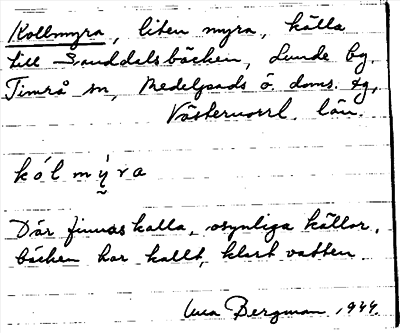 Kollmyra, liten myra, källa
till Sanddalsbäcken, Lunde by.
Timrå sn, Medelpads ö. doms. tg,
Västernorrl. län.
kólmỳ̰ra
Där finnas kalla, osynliga källor,
bäcken har kallt, klart vatten
Bergman 1944.